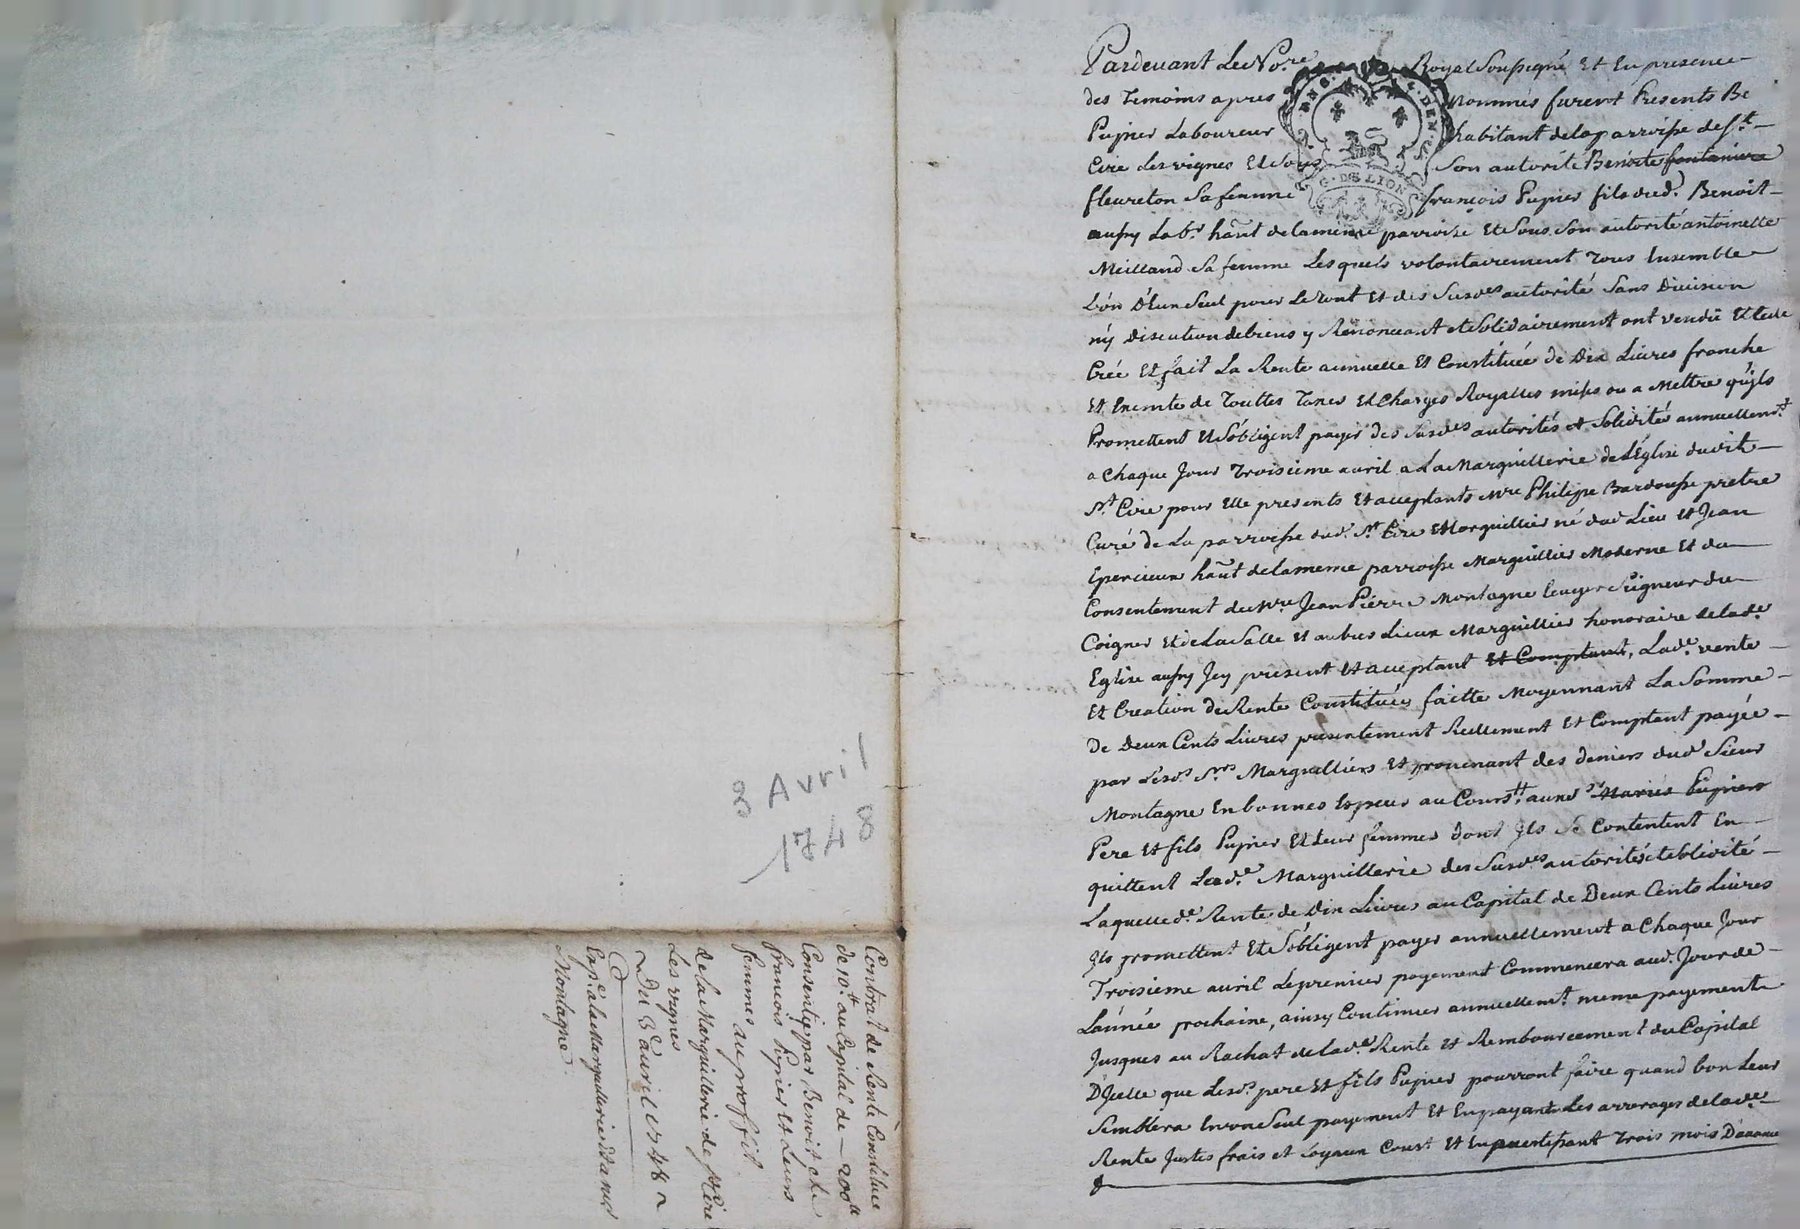 3 Avril
1748
Contrat de Rente Constitue
de 10.tt au Capital de — 200tt
Consenty par Benoit et
francois Pupier et Leurs
femmes au proffit
de la Marguillerie de St Cire
Les vignes
Du 3e avril 1748
Exp.e a la Marguillerie
Montagne
Pardevant Le No.re Royal Soussigné Et En presence
des Temoins apres Nommés furent Presents Be
Pupier Laboureur habitant de la parroisse de St
Cire Les vignes Et Sous Son autorité Benoite fontaniere
fleureton Sa femme françois Pupier fils dud. Benoit
aussy Lab.r hañt de la même parroise Et Sous Son autorité antoinette
Meilland Sa femme Lesquels volontairement Tous Ensemble
L'ún D'Eux Seul pour Le Tout Et des Susdes autorité Sans Division
ny discution de biens y Renonceant et Solidairement ont vendü Et
Créé Et fait La Rente annuelle Et Constituée de Dix Livres franche
Et Exemte de Touttes Taxes Et Charges Royalles mises ou a Mettre qu'ils
Promettent Et S'obligent payer des Susdes autorités et Solidité annuellem.t
a Chaque Jour Troisieme avril a La Marguillerie de L'Église dudit
St. Cire pour Elle presents Et acceptants Mre Philipe Bardousse pretre
Curé de La parroisse dud. St Cire Et Marguillier né dud Lieu Et Jean
Epercieux hañt de la meme parroisse Marguillier Moderne Et du
Consentement de Mre Jean Pierre Montagne Ecuyer Seigneur du
Poigner Et de La Salle Et autres Lieux Marguillier honoraire de lad.e
Eglise aussy Icy present Et acceptant Et Comptant, Lad.e vente
Et Creation de Rente Constituée faitte Moyennant La Somme
de Deux Cents Livres presentement Reellement Et Comptant payée
par Lesds Srs Marguilliers Et provenant des deniers dud Sieur
Montagne En bonnes Especes au Cours Mariés Pupier
Pere Et fils Pupier Et Leur femmes dont Ils Se Contentent En
quittent Lad.e Marguillerie des Susdes autorités et Solidité
Laquelle de Rente de Dix Livres au Capital de Deux Cents Livres
Ils promettent Et S'obligent payer annuellement a Chaque Jour
Troisieme avril Le premier payement Commencera aud. Jour de
L'année prochaine, ainsy Continuer annuellem.t meme payement
Jusques au Rachat de lad.e Rente Et Remboursement du Capital
D'Icelle que Lesd. pere Et fils Pupier pourront faire quand bon Leur
Semblera En un Seul payement Et En payant Les arrerages de lad.e
Rente Justes frais et Loyaux Coust Et En avertissant Trois mois D'avance